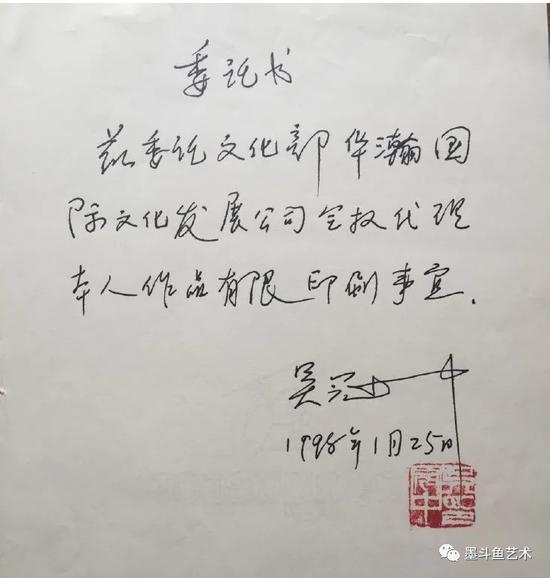 委托书
兹委托文化部华瀚国
际文化发展公司全权代理
本人作品有限印刷事宜.
吴冠中
1998年1月25日
墨斗鱼艺术